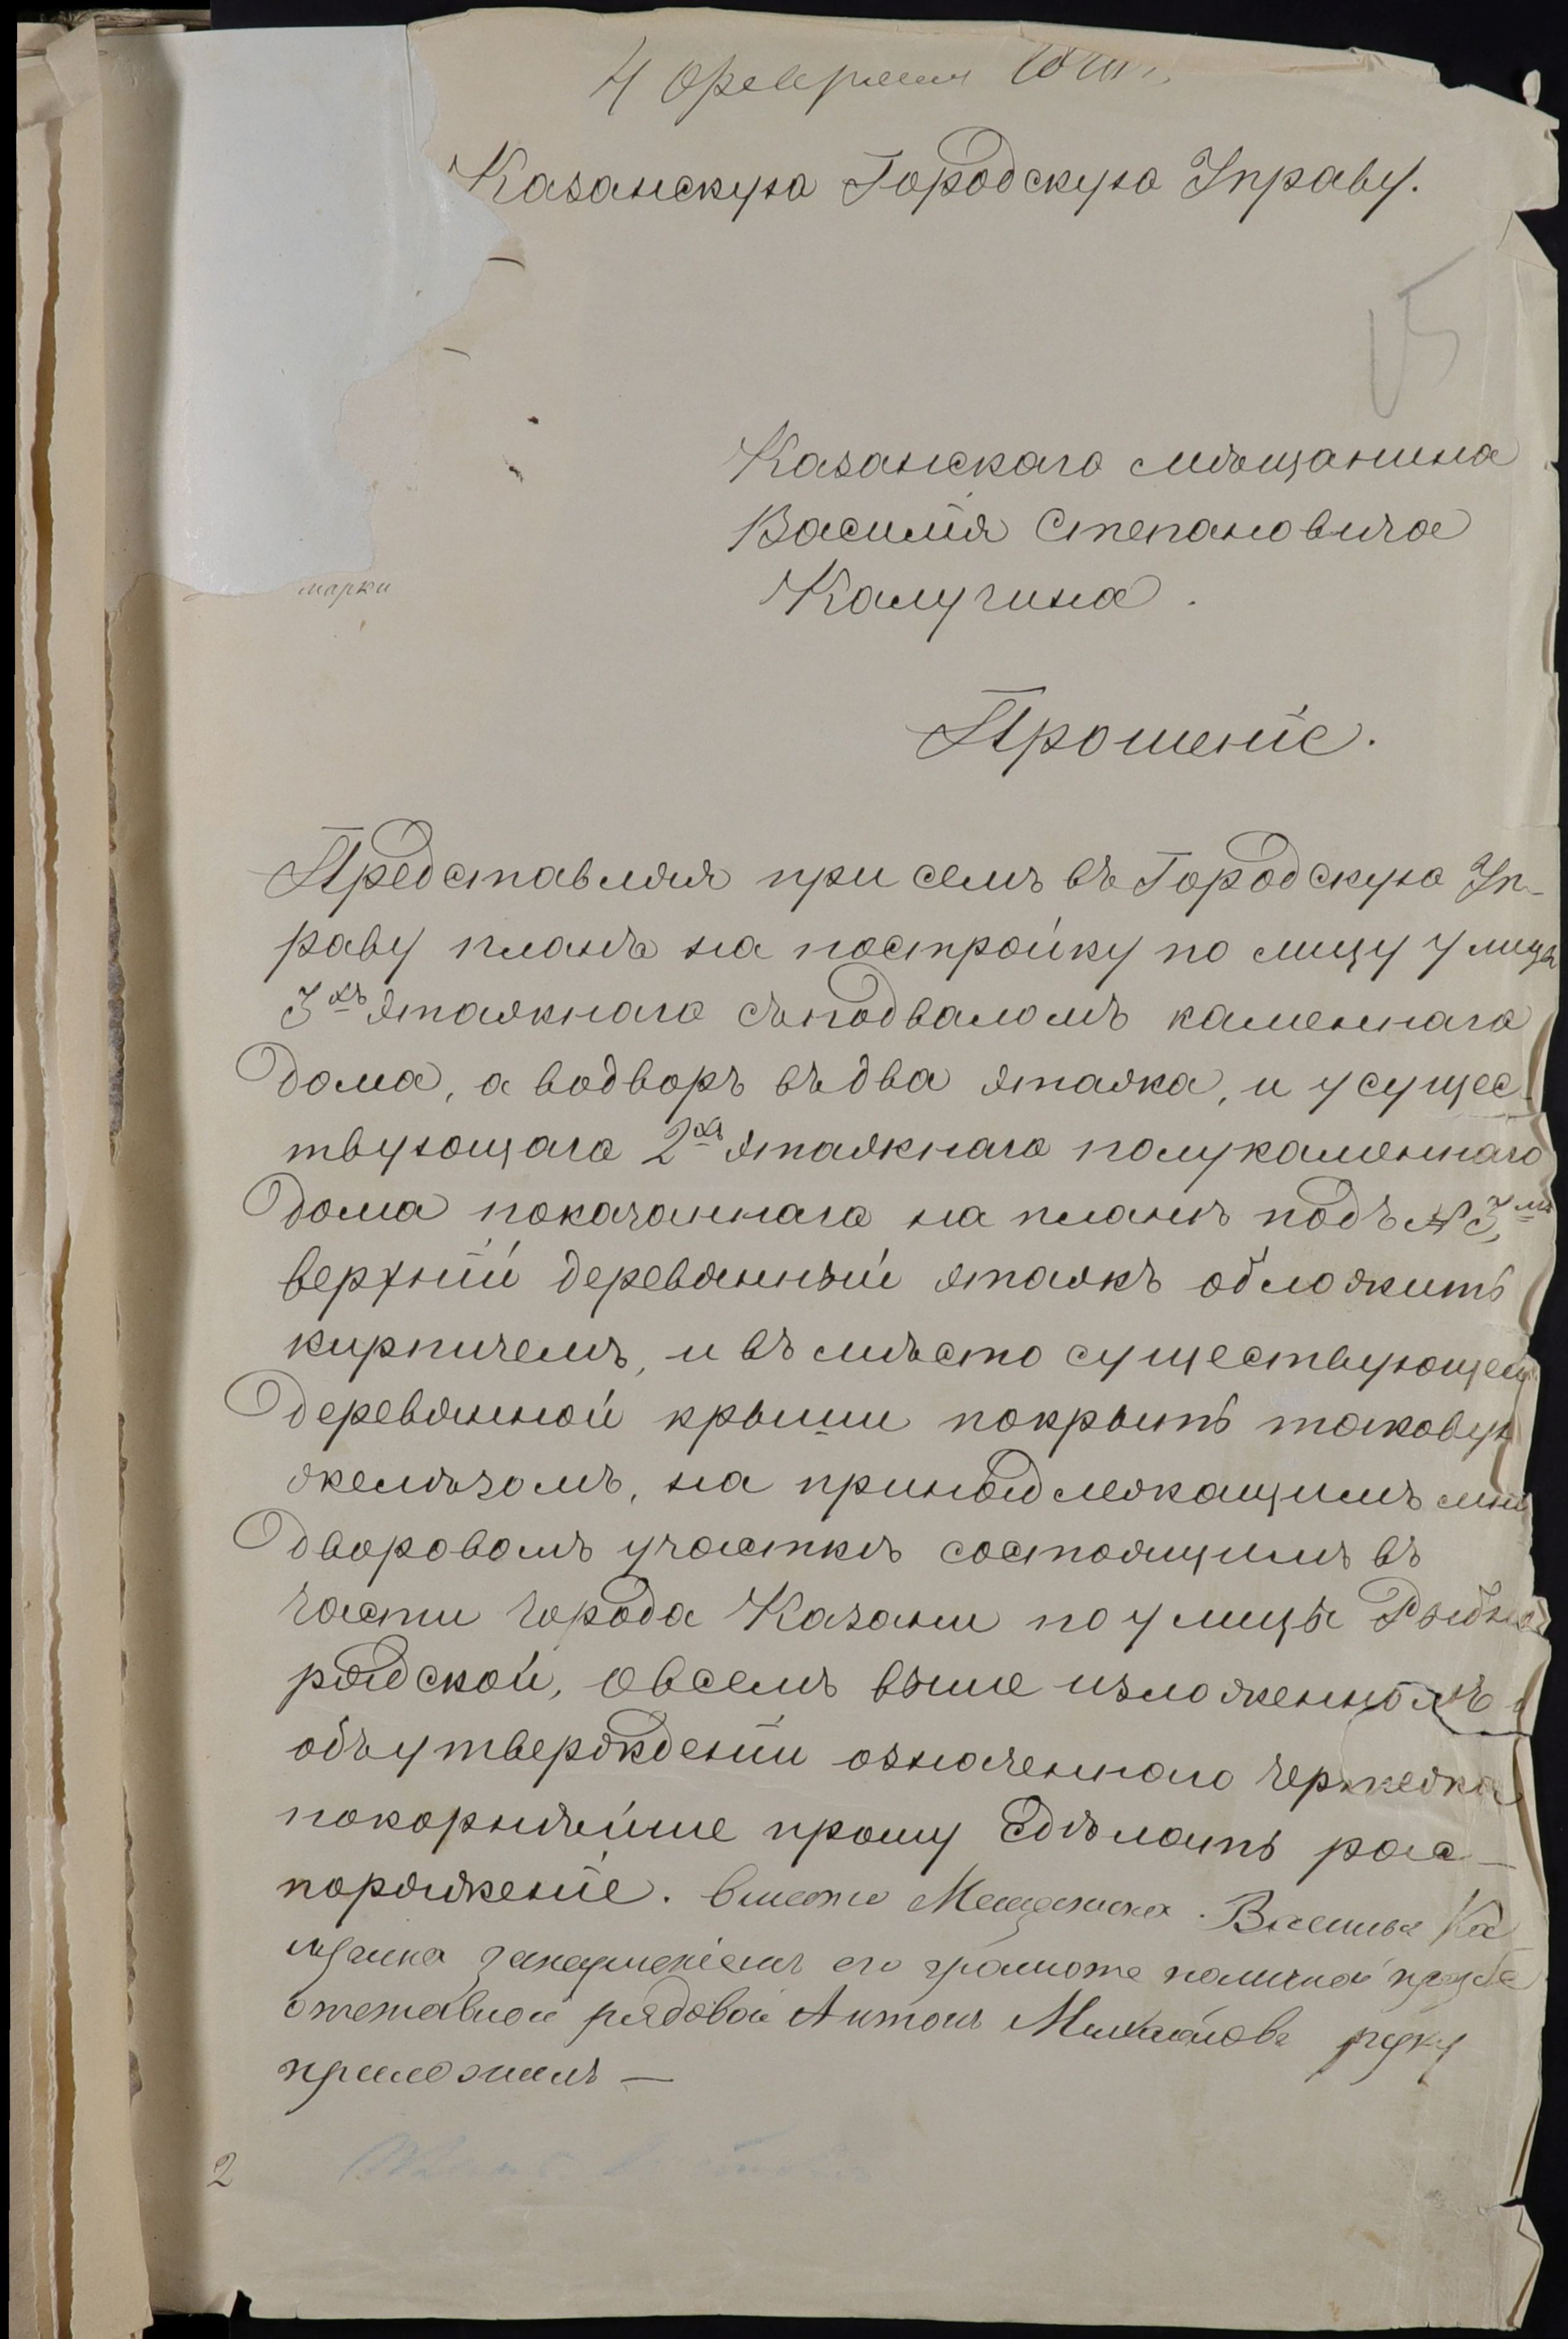 4 февраля
Казанскую Городскую Управу.
15
Казанскаго мѣщанина
Василія Степановича
Калугина.
марки
Прошеніе.
Представляя при семъ въ Городскую Уп-
раву планъ на постройку по лицу улицы
3хъ этажнаго съ подвалом каменнаго
дома, а водворъ въ два этажа, и у сущес-
твующаго 2хъ этажнаго полукаменнаго
дома показаннаго на планѣ подъ №3мъ
верхній деревянный этажъ обложить
кирпичемъ, и въ мѣсто существующей
деревянной крыши покрыть таковую
желѣзомъ, на принадлежащимъ мнѣ
дворовомъ участкѣ состоящимъ въ
части города Казани по улицѣ Рыбно
рядской, овсемъ выше изложенномъ и
объ утвержденіи означеннаго чертежа
покорнѣйше прошу сдѣлать рас-
поряженіе. вместо Мещанина Василья Ка
лугина занеумениемъ его грамоте поличной прозбе
отставной рядовой Антонъ Михайловъ руку
приложилъ —
2